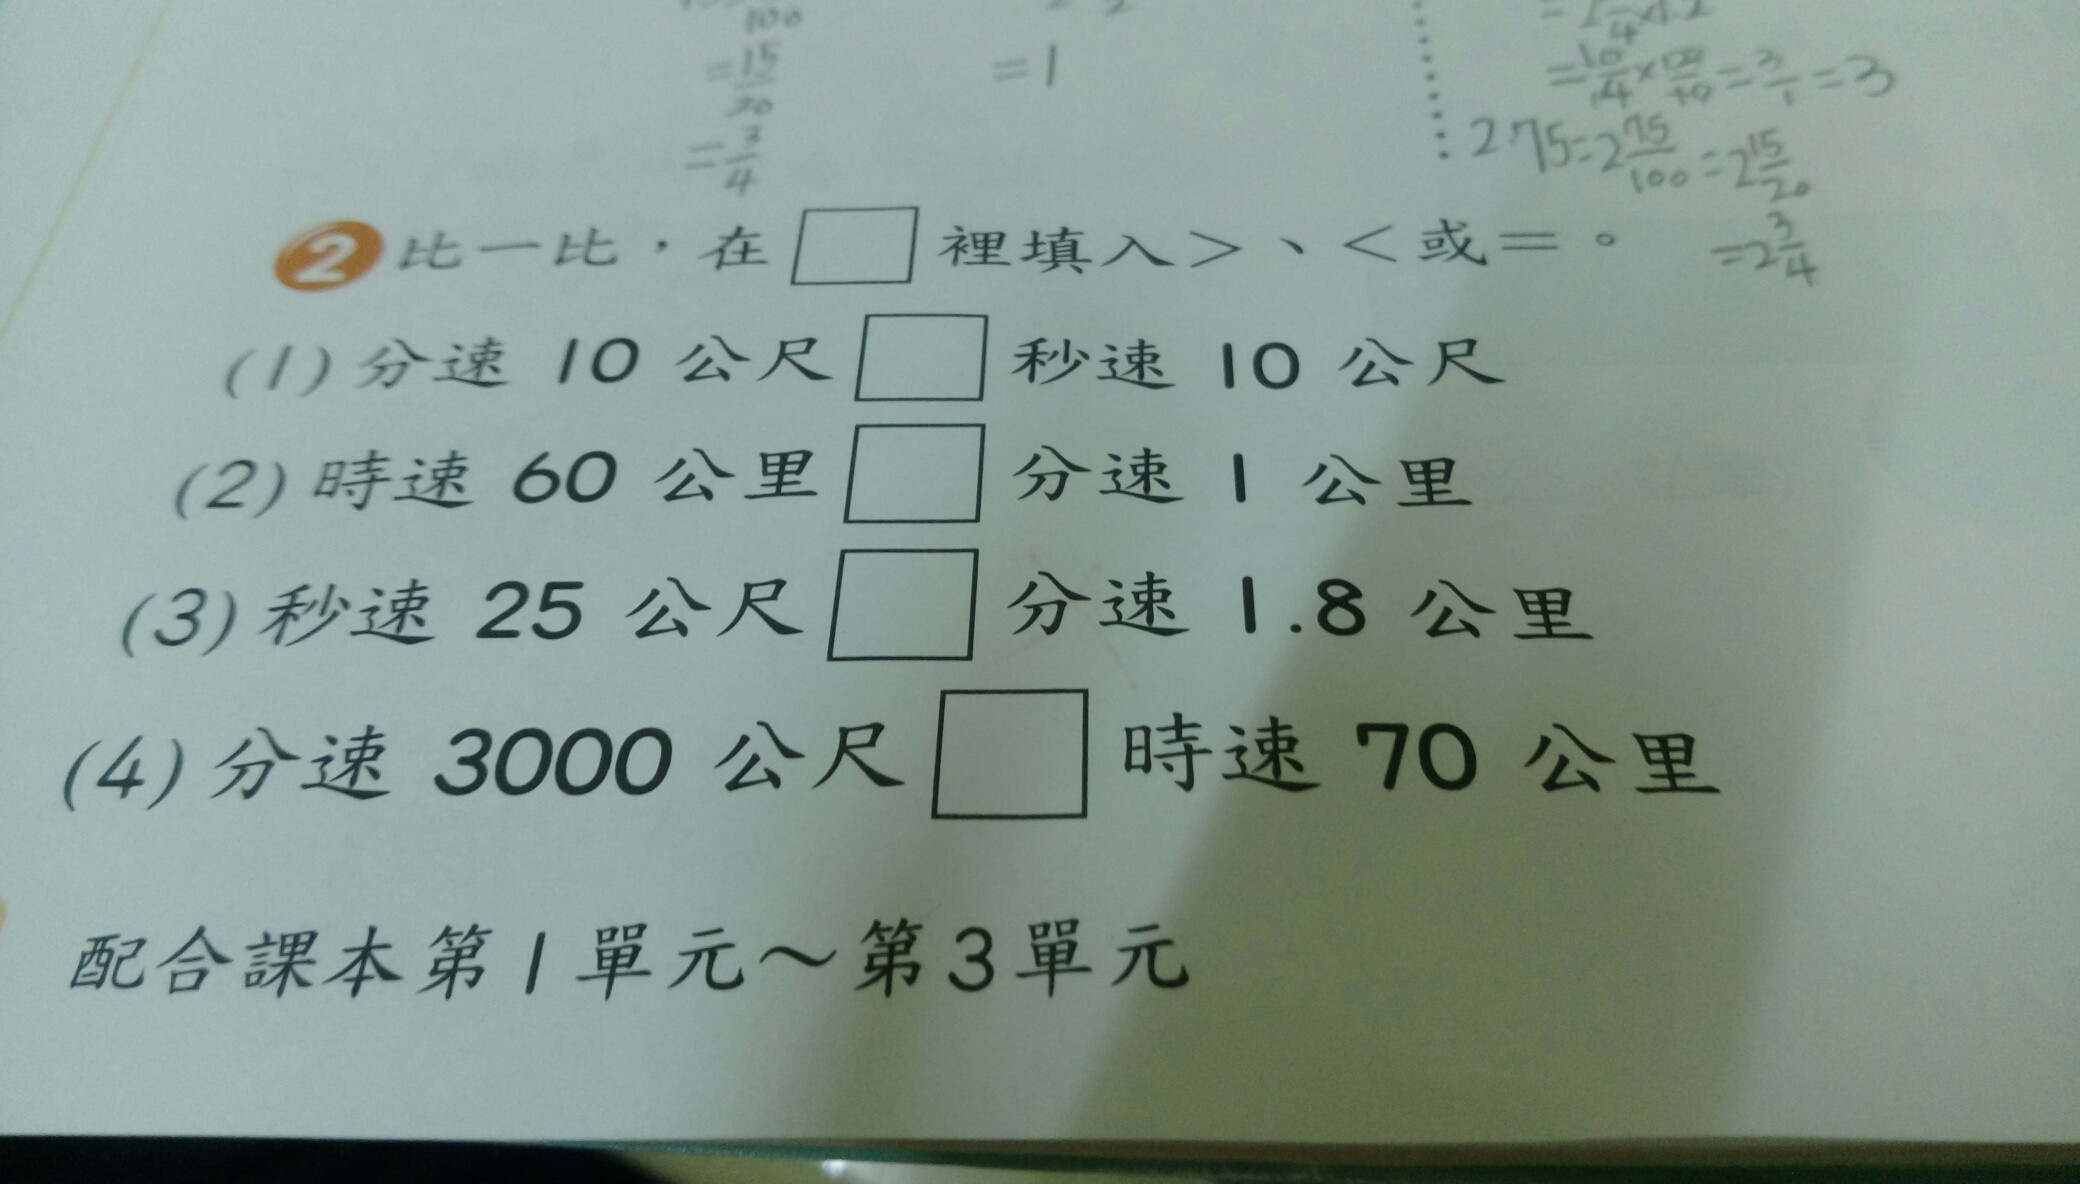 100
=15/20
=3/4
=1
=10/4×
=3/1=3
2.75=2 75/100=2 15/20
=2 3/4
2 比一比，在□裡填入>、<或=。
(1)分速 10 公尺□秒速 10 公尺
(2)時速 60 公里□分速 1 公里
(3)秒速 25 公尺□分速 1.8 公里
(4)分速 3000 公尺□時速 70 公里
配合課本第1單元~第3單元